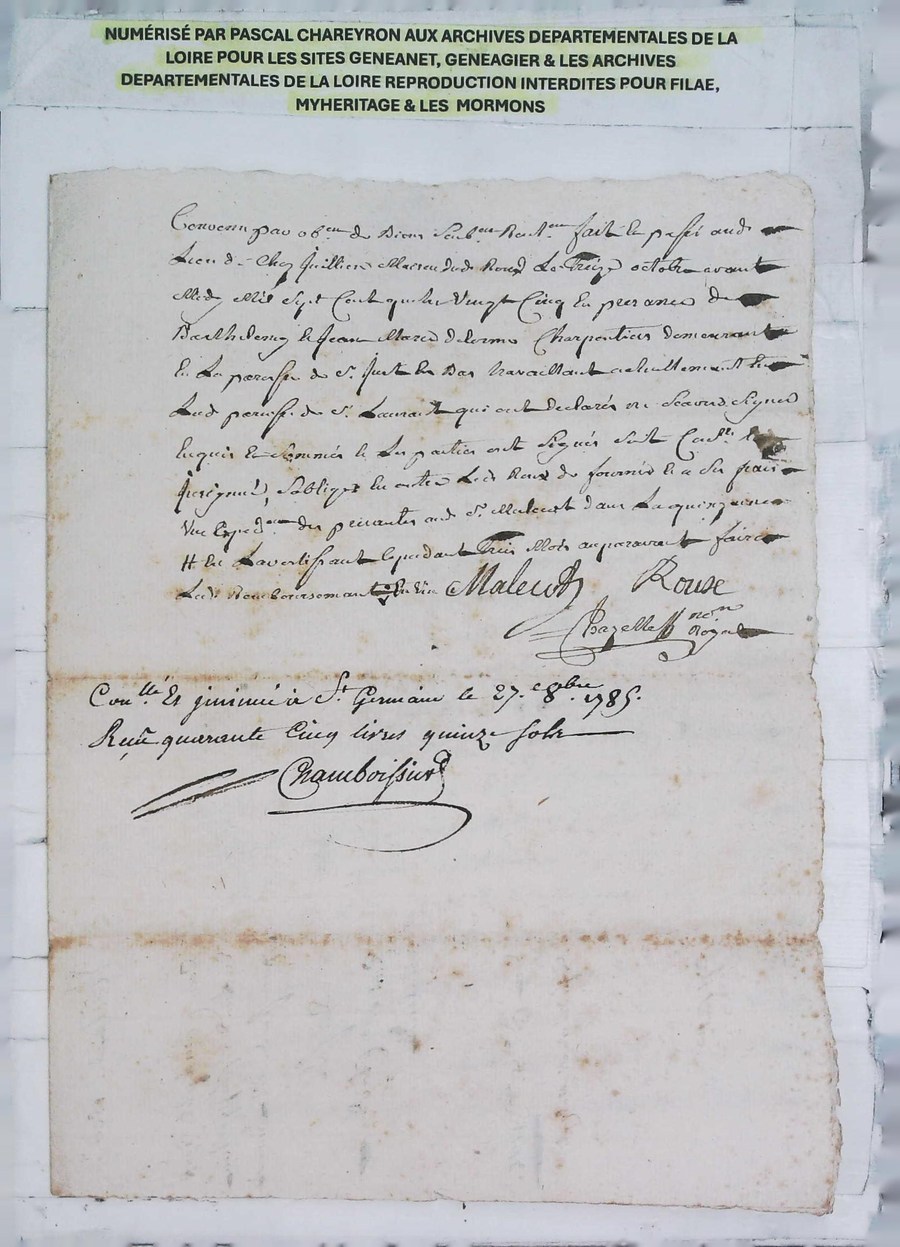 NUMÉRISÉ PAR PASCAL CHAREYRON AUX ARCHIVES DEPARTEMENTALES DE LA
LOIRE POUR LES SITES GENEANET, GENEAGIER & LES ARCHIVES
DEPARTEMENTALES DE LA LOIRE REPRODUCTION INTERDITES POUR FILAE,
MYHERITAGE & LES MORMONS
Convenu par obon de Biens fait et passé aud
Lieu de chez Jullien Maison dud Rous Le Treize octobre avant
Midy Mil Sept Cent quatre Vingt Cinq En presance de
Barthelemy et Jean Marie delorme Charpentiers demeurants
En La paroisse de St. Just En Bas travaillant actuellement
Lad paroisse de St. Laurant qui ont declarés ne Scavoir Signer
Enquis Et Sommés et Les parties ont Signés
Soussigné, S'oblige En outre Led Rous de fournir a Ses frais
Une Exped.on des presantes aud Sr. Malecot dans La quinzenne
Et En L'avertissant cependant trois Mois auparavant faire
Led Remboursemant Malecot Rouse
Chazelle nore Royal
Con.llé Et St Germain le 27. 8bre 1785.
Reçu quarante Cinq livres quinze sols
Chamboissier